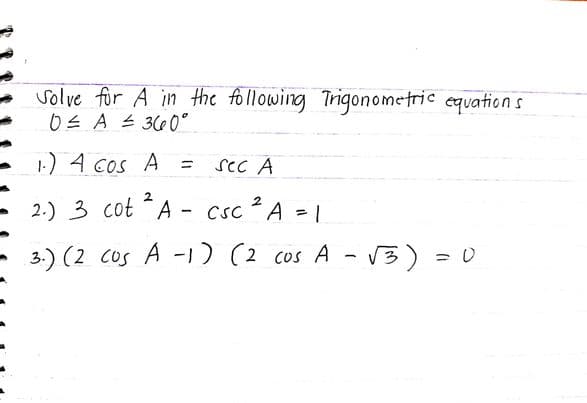 Solve for A in the following Trigonometric equations
0 ≤ A ≤ 360°
1.) 4 cos A = sec A
2.) 3 cot ² A - csc ² A = 1
3.) (2 cos A -1) (2 cos A - √3) = 0